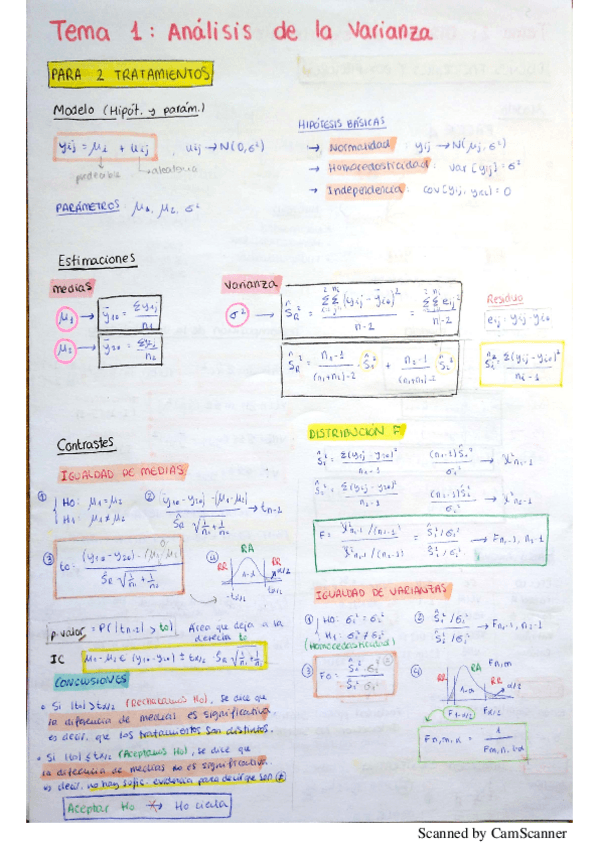 Tema 1: Análisis de la Varianza
PARA 2 TRATAMIENTOS
Modelo (Hipót. y parám.)
yij = μ1 + uij , uij → N(0,σ²)
predecible
aleatorio
PARÁMETROS μ1, μ2, σ²
HIPÓTESIS BÁSICAS
→ Normalidad: yij → N(μi, σ²)
→ Homocedasticidad: var [yij] = σ²
→ Independencia: cov[yij, ykl] = 0
Estimaciones
medias
μ1 → ȳ10 = Σy1j / n1
μ2 → ȳ20 = Σy2j / n2
Varianza
σ² → ŜR² = ΣΣ(yij - ȳi0)² / n-2 = ΣΣ eij² / n-2
ŜR² = n1-1 / (n1+n2)-2 Ŝ1² + n2-1 / (n1+n2)-2 Ŝ2²
Residuo
eij = yij - yi0
Ŝi² = Σ(yij - yi0)² / ni-1
Contrastes
IGUALDAD DE MEDIAS
① H0: μ1 = μ2
H1: μ1 ≠ μ2
② (y10 - y20) - (μ1 - μ2) / ŜR √1/n1 + 1/n2 → tn-2
③ t0 = (y10 - y20) - (μ1 μ2) 0 / ŜR √1/n1 + 1/n2
④ RR RA RR
n-2
α/2
-tα/2 tα/2
p-valor = P(|tn-2| > t0) Área que deja a la
derecha t0
IC μ1 - μ2 ∈ (y10 - y20) ± tα/2 · ŜR √1/n1 + 1/n2
CONCLUSIONES
• Si |t0| > tα/2 (Rechazamos H0), se dice que
la diferencia de medias es significativa,
es decir, que los tratamientos son distintos.
• Si |t0| ≤ tα/2 (Aceptamos H0), se dice que
la diferencia de medias no es significativa.
es decir, no hay sufic. evidencia para decir que son ≠
Aceptar H0 ⇏ H0 cierta
DISTRIBUCIÓN F
Ŝ1² = Σ(y1j - y10)² / n1-1 (n1-1)Ŝ1² / σ1² → χ²n1-1
Ŝ2² = Σ(y2j - y20)² / n2-1 (n2-1)Ŝ2² / σ2² → χ²n2-1
F = χ²n1-1 / (n1-1) / χ²n2-1 / (n2-1) = Ŝ1² / σ1² / Ŝ2² / σ2² → Fn1-1, n2-1
IGUALDAD DE VARIANZAS
① H0: σ1² = σ2²
H1: σ1² ≠ σ2²
(Homocedasticidad)
② Ŝ1² / σ1² / Ŝ2² / σ2² → Fn1-1, n2-1
③ F0 = Ŝ1² σ2² / Ŝ2² σ1²
④ Fn,m
RR RA RR
1-α
α/2
F1-α/2 Fα/2
Fn,m,α = 1 / Fm,n,1-α
Scanned by CamScanner